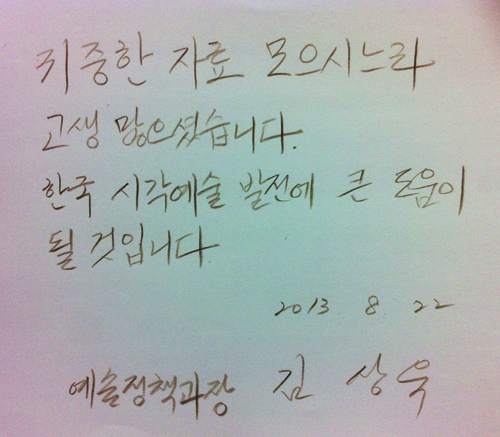 귀중한 자료 모으시느라
고생 많으셨습니다.
한국 시각예술 발전에 큰 도움이
될 것입니다.
2013 8 22
예술정책과장 김 상 욱